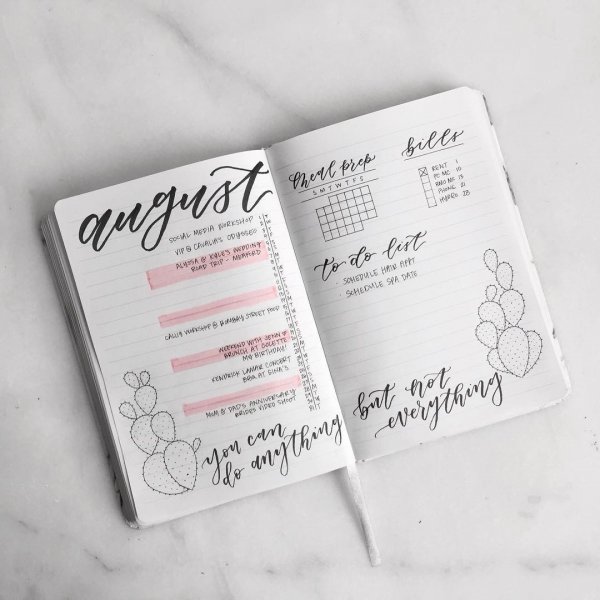 august
SOCIAL MEDIA WORKSHOP
VIP @ CAVALIA'S ODYSSEO
ALYSSA & KYLE'S WEDDING
ROAD TRIP -
CALLIG WORKSHOP @ BOMBAY STREET FOOD
WEEKEND WITH JENN @
BRUNCH AT COLETTE
MY BIRTHDAY!
KENDRICK LAMAR CONCERT
BBQ AT GINA'S
MOM & DAD'S ANNIVERSARY
BRIDES VIDEO SHOOT
you can
do anything
meal prep
S M T W T F S
bills
RENT 1
PC MC 10
PHONE 21
28
to do list
SCHEDULE HAIR APPT
SCHEDULE SPA DATE
but not
everything